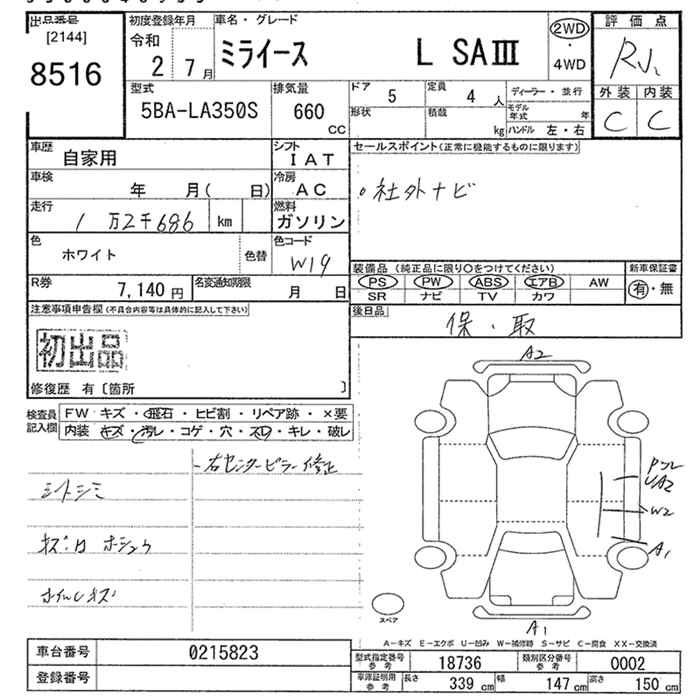 出品番号
[2144]
8516
初度登録年月
令和
2 7月
車名・グレード
ミライース L SAⅢ
2WD
・
4WD
評価点
R
外装 内装
C C
型式
5BA-LA350S
排気量
660
CC
ドア
5
定員
4 人
形状
積載
kg
ディーラー・並行
モデル年式 年
ハンドル 左・右
車歴
自家用
シフト
IAT
車検
年 月( 日)
冷房
AC
走行
1万2千686 km
燃料
ガソリン
色
ホワイト
色替
色コード
W19
R券
7,140 円
名変通知期限
月 日
セールスポイント(正常に機能するものに限ります)
。社外ナビ
装備品(純正品に限り○をつけてください)
新車保証書
PS PW ABS エアB AW
有・無
SR ナビ TV カワ
後日品
保・取
注意事項申告欄(不具合内容等は具体的に記入して下さい)
初出品
修復歴 有〔箇所 〕
検査員記入欄
FW キズ・飛石・ヒビ割・リペア跡・×要
内装 キズ・汚レ・コゲ・穴・スレ・キレ・破レ
-右センターピラー修正
シートシミ
キズ・凹 ホシュウ
ホイルキズ
A2
UA2
W2
A1
A1
スペア
A-キズ E-エクボ U-凹み W-補修跡 S-サビ C-腐食 XX-交換済
車台番号
0215823
登録番号
型式指定番号
参考
18736
類別区分番号
参考
0002
車庫証明用
参考
長さ 339 cm
幅 147 cm
高さ 150 cm